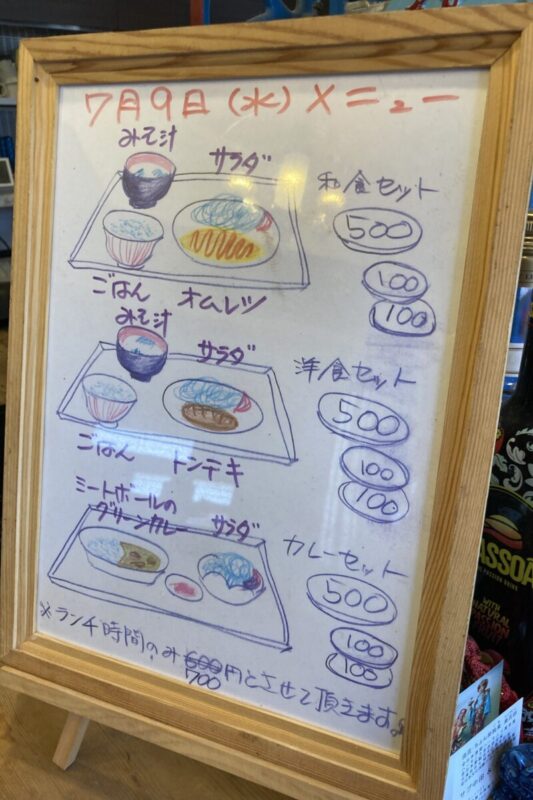 7月9日(水)メニュー
みそ汁
サラダ
和食セット
500
100
100
ごはん オムレツ
みそ汁
サラダ
洋食セット
500
100
100
ごはん トンテキ
ミートボールの
グリーンカレー サラダ
カレーセット
500
100
100
※ランチ時間のみ600円とさせて頂きます。
700
PASSOA
WITH
NATURAL